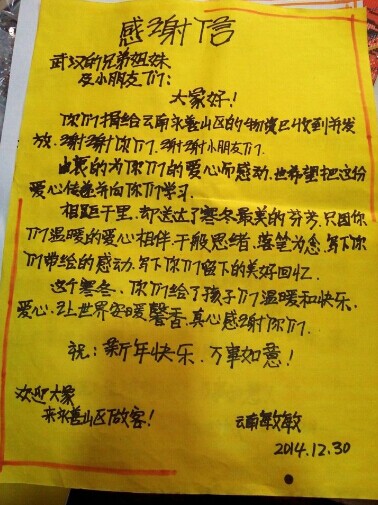 感谢信
武汉的兄弟姐妹
及小朋友们:
大家好!
你们捐给云南永善山区的物资已收到并发
放.谢谢你们.谢谢小朋友们.
由衷的为你们的爱心而感动.也希望把这份
爱心传递并向你们学习.
相距千里.却送达了寒冬最美的芬芳.只因你
们温暖的爱心相伴.千般思绪.落笔为念.写下你
们带给的感动.写下你们留下的美好回忆.
这个寒冬.你们给了孩子们温暖和快乐.
爱心.让世界安暖馨香.真心感谢你们.
祝:新年快乐.万事如意!
欢迎大家
来永善山区做客!
云南敏敏
2014.12.30